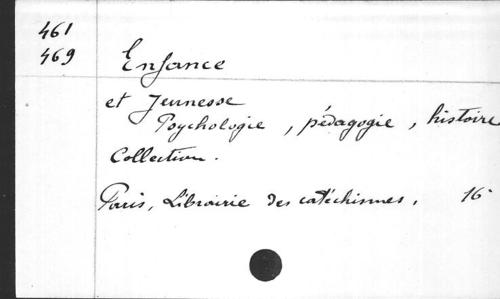 461
469 Enfance
et Jeunesse
Psychologie, pédagogie, histoire
Collection.
Paris, Librairie des catéchismes, 16°